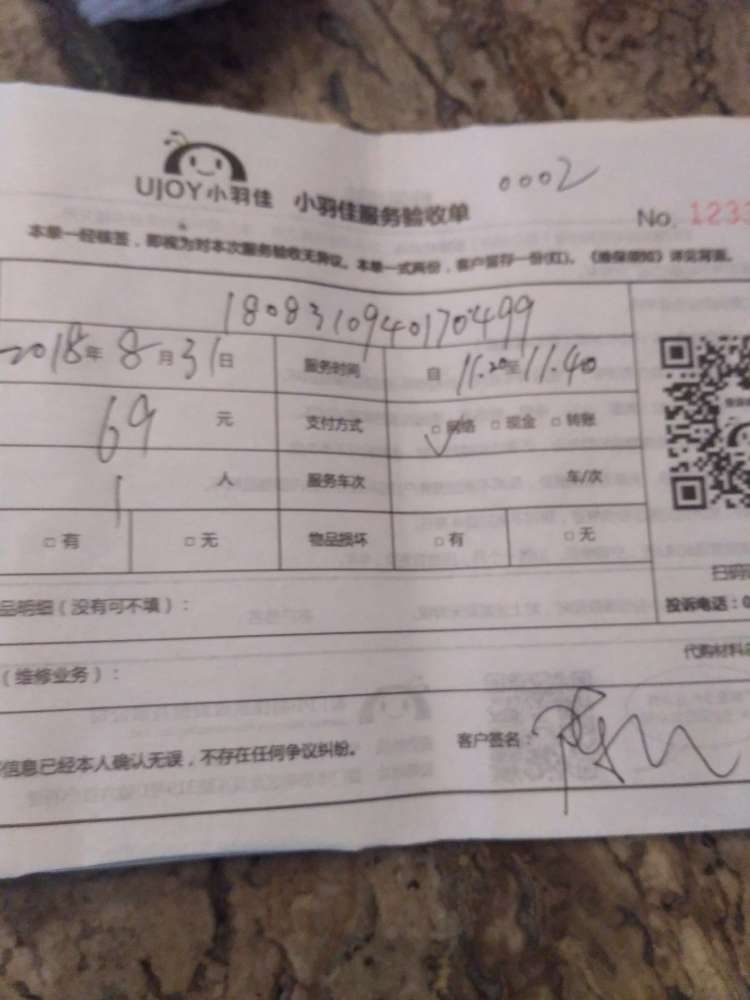 0002
UJOY小羽佳 小羽佳服务验收单
No. 1233
本单一经核签，即视为对本次服务验收无异议。本单一式两份，客户留存一份(红)。《维保须知》详见背面。
1808310940170499
2018年8月31日 服务时间 自 11.20至11.40
69 元 支付方式 □网络 □现金 □转账
1 人 服务车次 车/次
□有 □无 物品损坏 □有 □无
扫码
品明细（没有可不填）： 投诉电话：0
（维修业务）： 代购材料
信息已经本人确认无误，不存在任何争议纠纷。 客户签名：